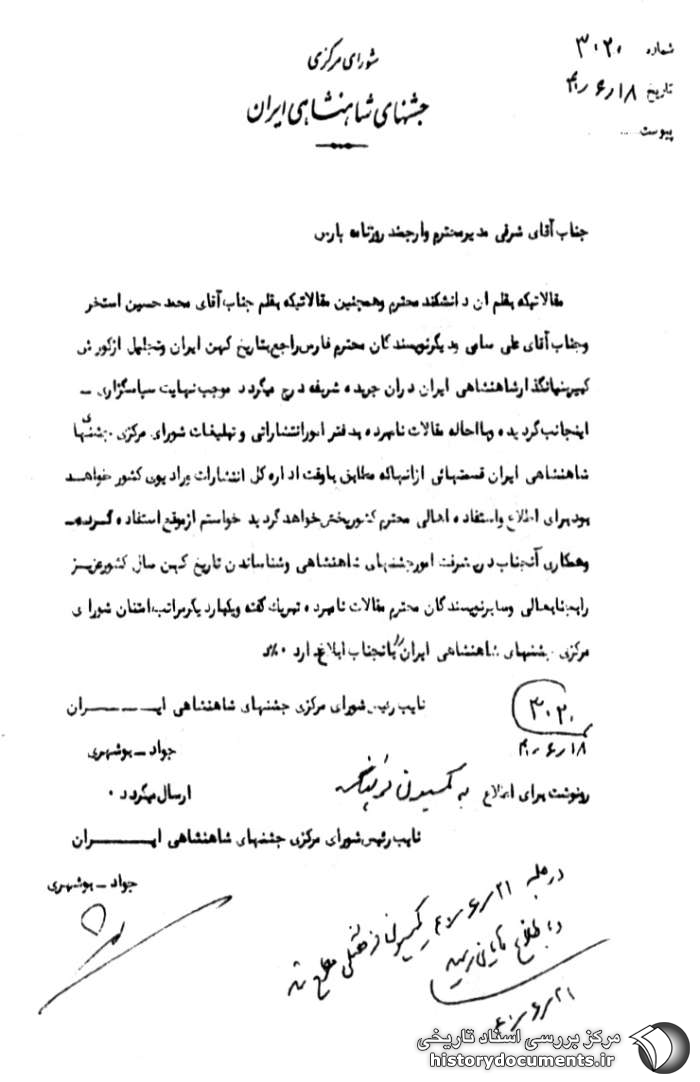 شماره ۳۰۲۰
تاریخ ۴۰٫۶٫۱۸
پیوست ....
شورای مرکزی
جشنهای شاهنشاهی ایران
جناب آقای شرقی مدیر محترم وارجمند روزنامه پارس
مقالاتیکه بقلم آن دانشکند محترم وهمچنین مقالاتیکه بقلم جناب آقای محمد حسین استخر
وجناب آقای علی سامی ودیگرنویسندگان محترم فارس راجع بتاریخ کهن ایران وتجلیل ازکورش
کبیربنیانگذارشاهنشاهی ایران درآن جریده شریفه درج میگردد موجب نهایت سپاسگزاری ـ
اینجانب گردیده وبااحاله مقالات نامبرده بدفتر امورانتشاراتی و تبلیغات شورای مرکزی جشنهای
شاهنشاهی ایران قسمتهائی ازآنهاکه مطابق باوقت اداره کل انتشارات ورادیوی کشور خواهد
بودبرای اطلاع واستفاده اهالی محترم کشورپخش خواهد گردید خواستم ازموقع استفاده کرده ـ
وهمکاری آنجناب درپیشرفت امورجشنهای شاهنشاهی وشناساندن تاریخ کهن سال کشورعزیز
رابجنابعالی وسایرنویسندگان محترم مقالات نامبرده تبریک گفته ویکباردیگرمراتب امتنان شورای
مرکزی جشنهای شاهنشاهی ایران را بآنجناب ابلاغ دارد ۰
نایب رئیس شورای مرکزی جشنهای شاهنشاهی ایـــران
جواد ـ بوشهری
۳۰۲۰
۴۰٫۶٫۱۸
رونوشت برای اطلاع به کمیسیون فرهنگی ارسال میگردد ۰
نایب رئیس شورای مرکزی جشنهای شاهنشاهی ایـــران
جواد ـ بوشهری
در جلسه ۴۰٫۶٫۲۱ کمیسیون فرهنگی مطرح شد
و باطلاع آقایان رسید
۴۰٫۶٫۲۱
مرکز بررسی اسناد تاریخی
historydocuments.ir